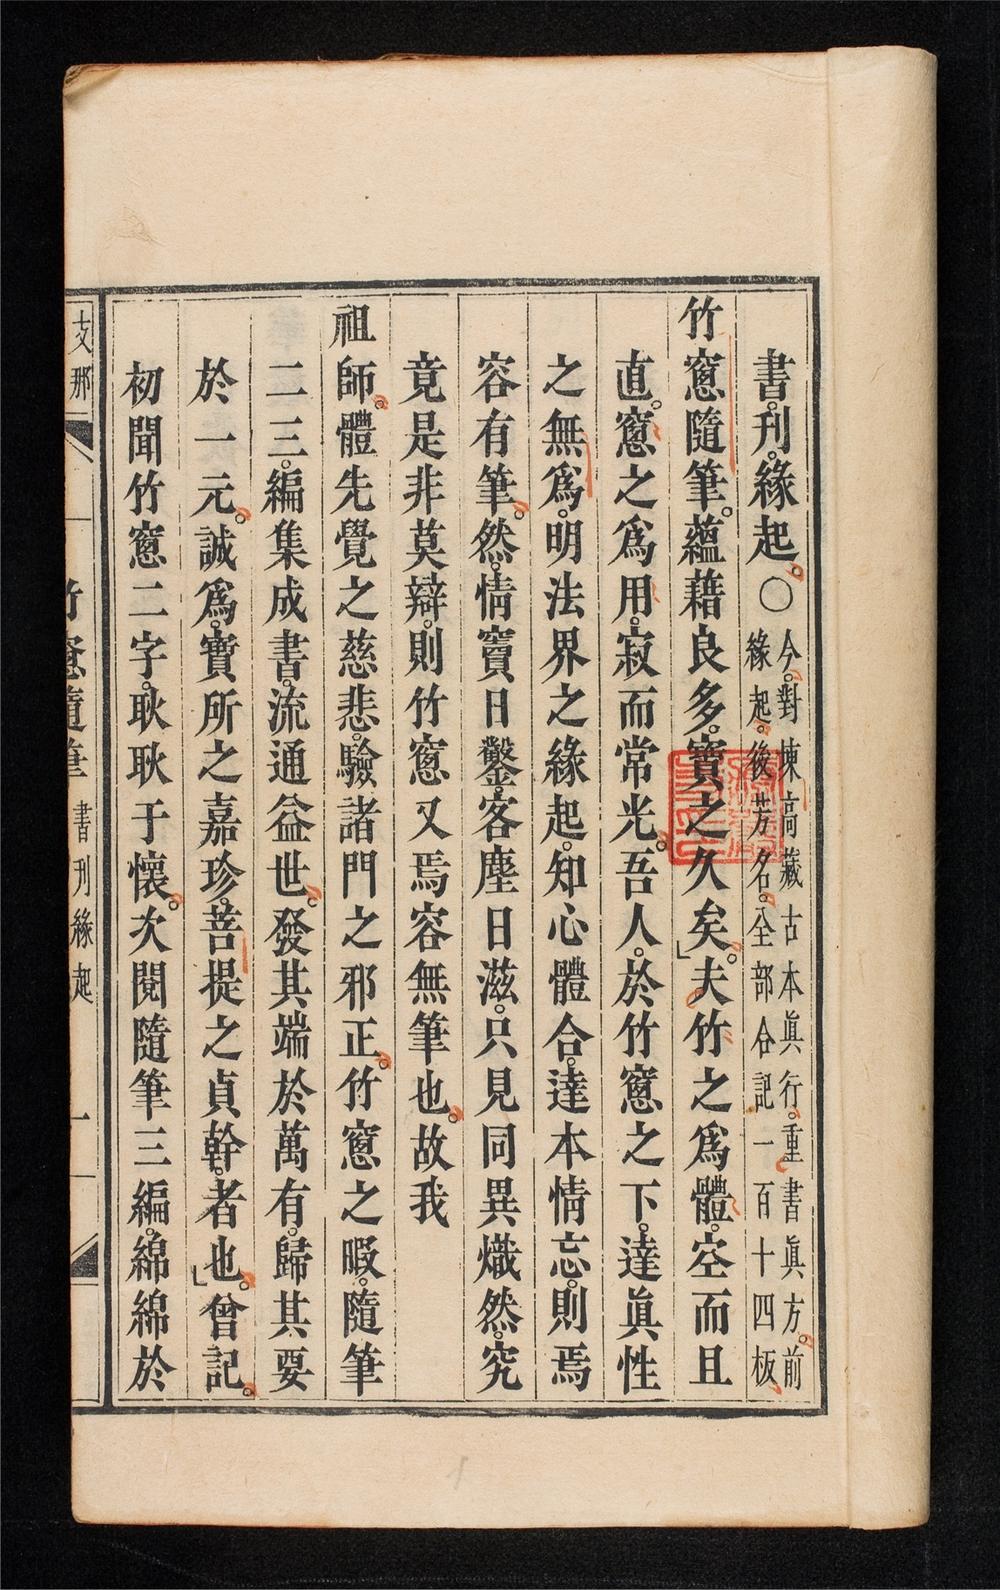 書刊緣起。○今對楝高藏古本眞行。重書眞方。前
緣起。後芳名。全部合記一百十四板
竹窻隨筆。蘊藉良多。寶之久矣。夫竹之爲體。空而且
直。窻之爲用。寂而常光。吾人。於竹窻之下。達眞性
之無爲。明法界之緣起。知心體合。達本情忘。則焉
容有筆。然。情竇日鑿。客塵日滋。只見同異熾然。究
竟是非莫辯。則竹窻又焉容無筆也。故我
祖師。體先覺之慈悲。驗諸門之邪正。竹窻之暇。隨筆
二三。編集成書。流通益世。發其端於萬有。歸其要
於一元。誠爲。寶所之嘉珍。菩提之貞幹。者也。曾記。
初聞竹窻二字。耿耿于懷。次閱隨筆三編。綿綿於
支那
竹窻隨筆 書刊緣起 一